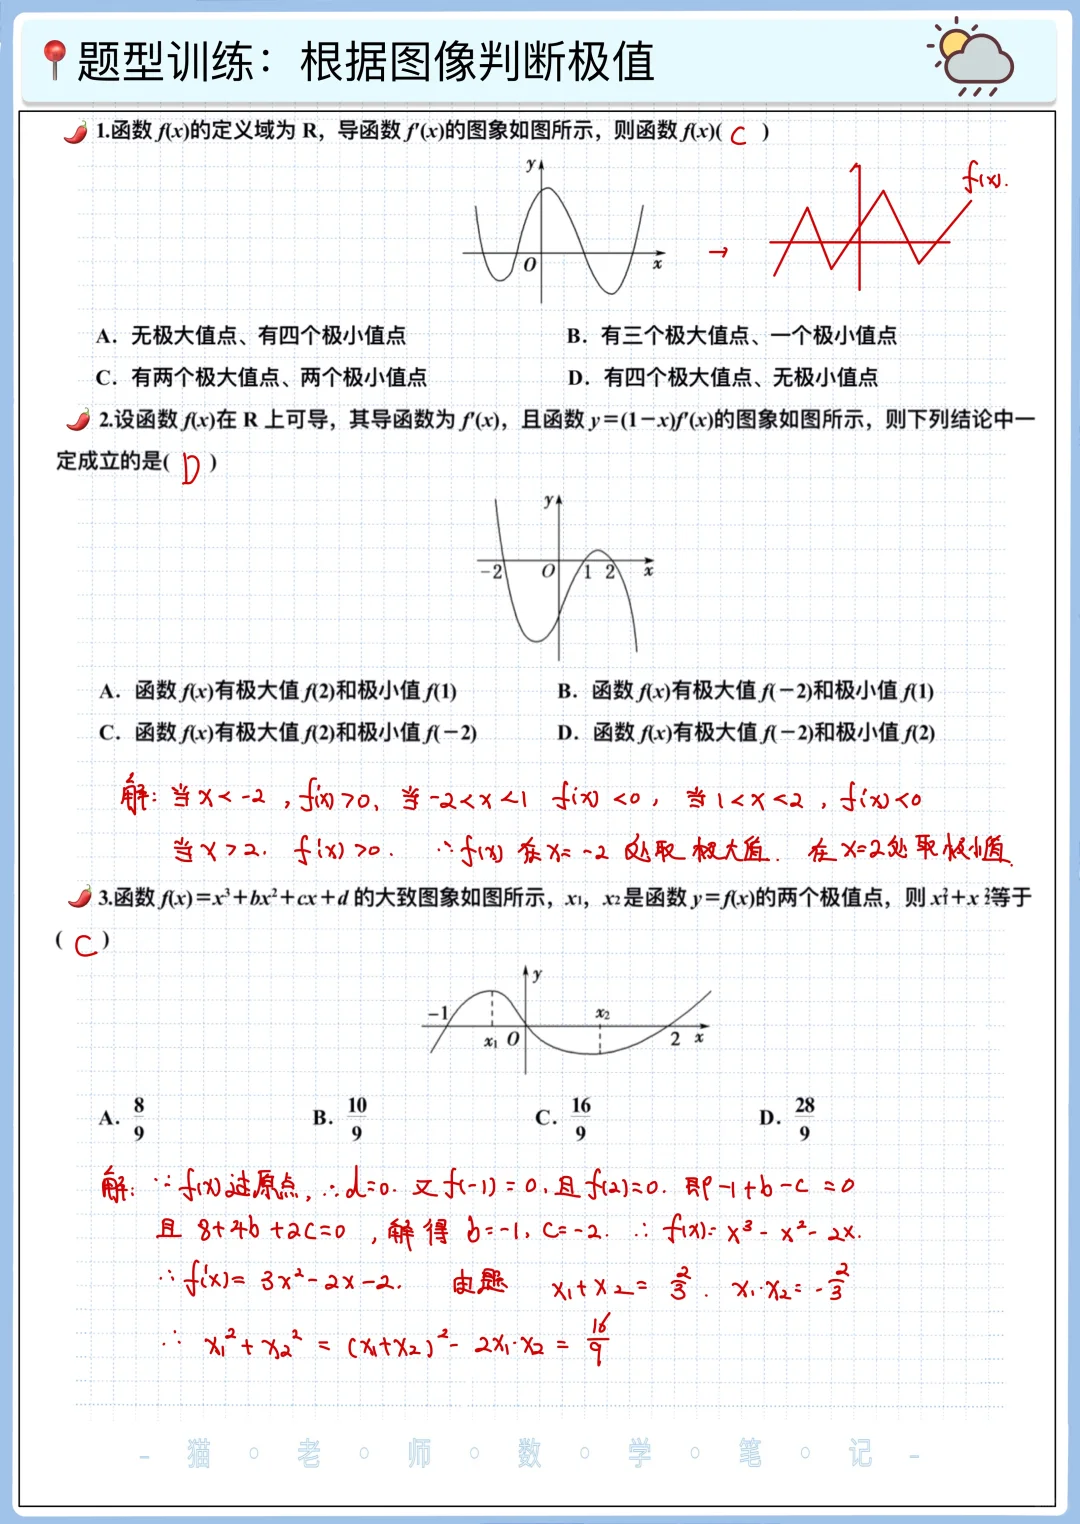 题型训练：根据图像判断极值
1.函数 f(x)的定义域为 R，导函数 f′(x)的图象如图所示，则函数 f(x)( C )
y
O
x
→
f(x).
A．无极大值点、有四个极小值点
B．有三个极大值点、一个极小值点
C．有两个极大值点、两个极小值点
D．有四个极大值点、无极小值点
2.设函数 f(x)在 R 上可导，其导函数为 f′(x)，且函数 y＝(1－x)f′(x)的图象如图所示，则下列结论中一
定成立的是( D )
y
－2
O
1
2
x
A．函数 f(x)有极大值 f(2)和极小值 f(1)
B．函数 f(x)有极大值 f(－2)和极小值 f(1)
C．函数 f(x)有极大值 f(2)和极小值 f(－2)
D．函数 f(x)有极大值 f(－2)和极小值 f(2)
解：当 x < -2 , f′(x) > 0, 当 -2 < x < 1 f′(x) < 0, 当 1 < x < 2 , f′(x) < 0
当 x > 2. f′(x) > 0. ∵ f(x) 在 x = -2 处取极大值. 在 x=2处取极小值.
3.函数 f(x)＝x³＋bx²＋cx＋d 的大致图象如图所示，x₁，x₂是函数 y＝f(x)的两个极值点，则 x₁²＋x₂²等于
( C )
y
－1
x₂
x₁
O
2
x
A．8/9
B．10/9
C．16/9
D．28/9
解：∵ f(x)过原点, ∴ d=0. 又 f(-1) = 0, 且 f(2)=0. 即 -1+b-c = 0
且 8+4b+2c=0 , 解得 b=-1, c=-2. ∴ f(x)= x³ - x² - 2x.
∴ f′(x)= 3x²-2x-2. 由题 x₁+x₂= 2/3 . x₁·x₂= -2/3
∴ x₁² + x₂² = (x₁+x₂)² - 2x₁·x₂ = 16/9
- 猫 · 老 · 师 · 数 · 学 · 笔 · 记 -